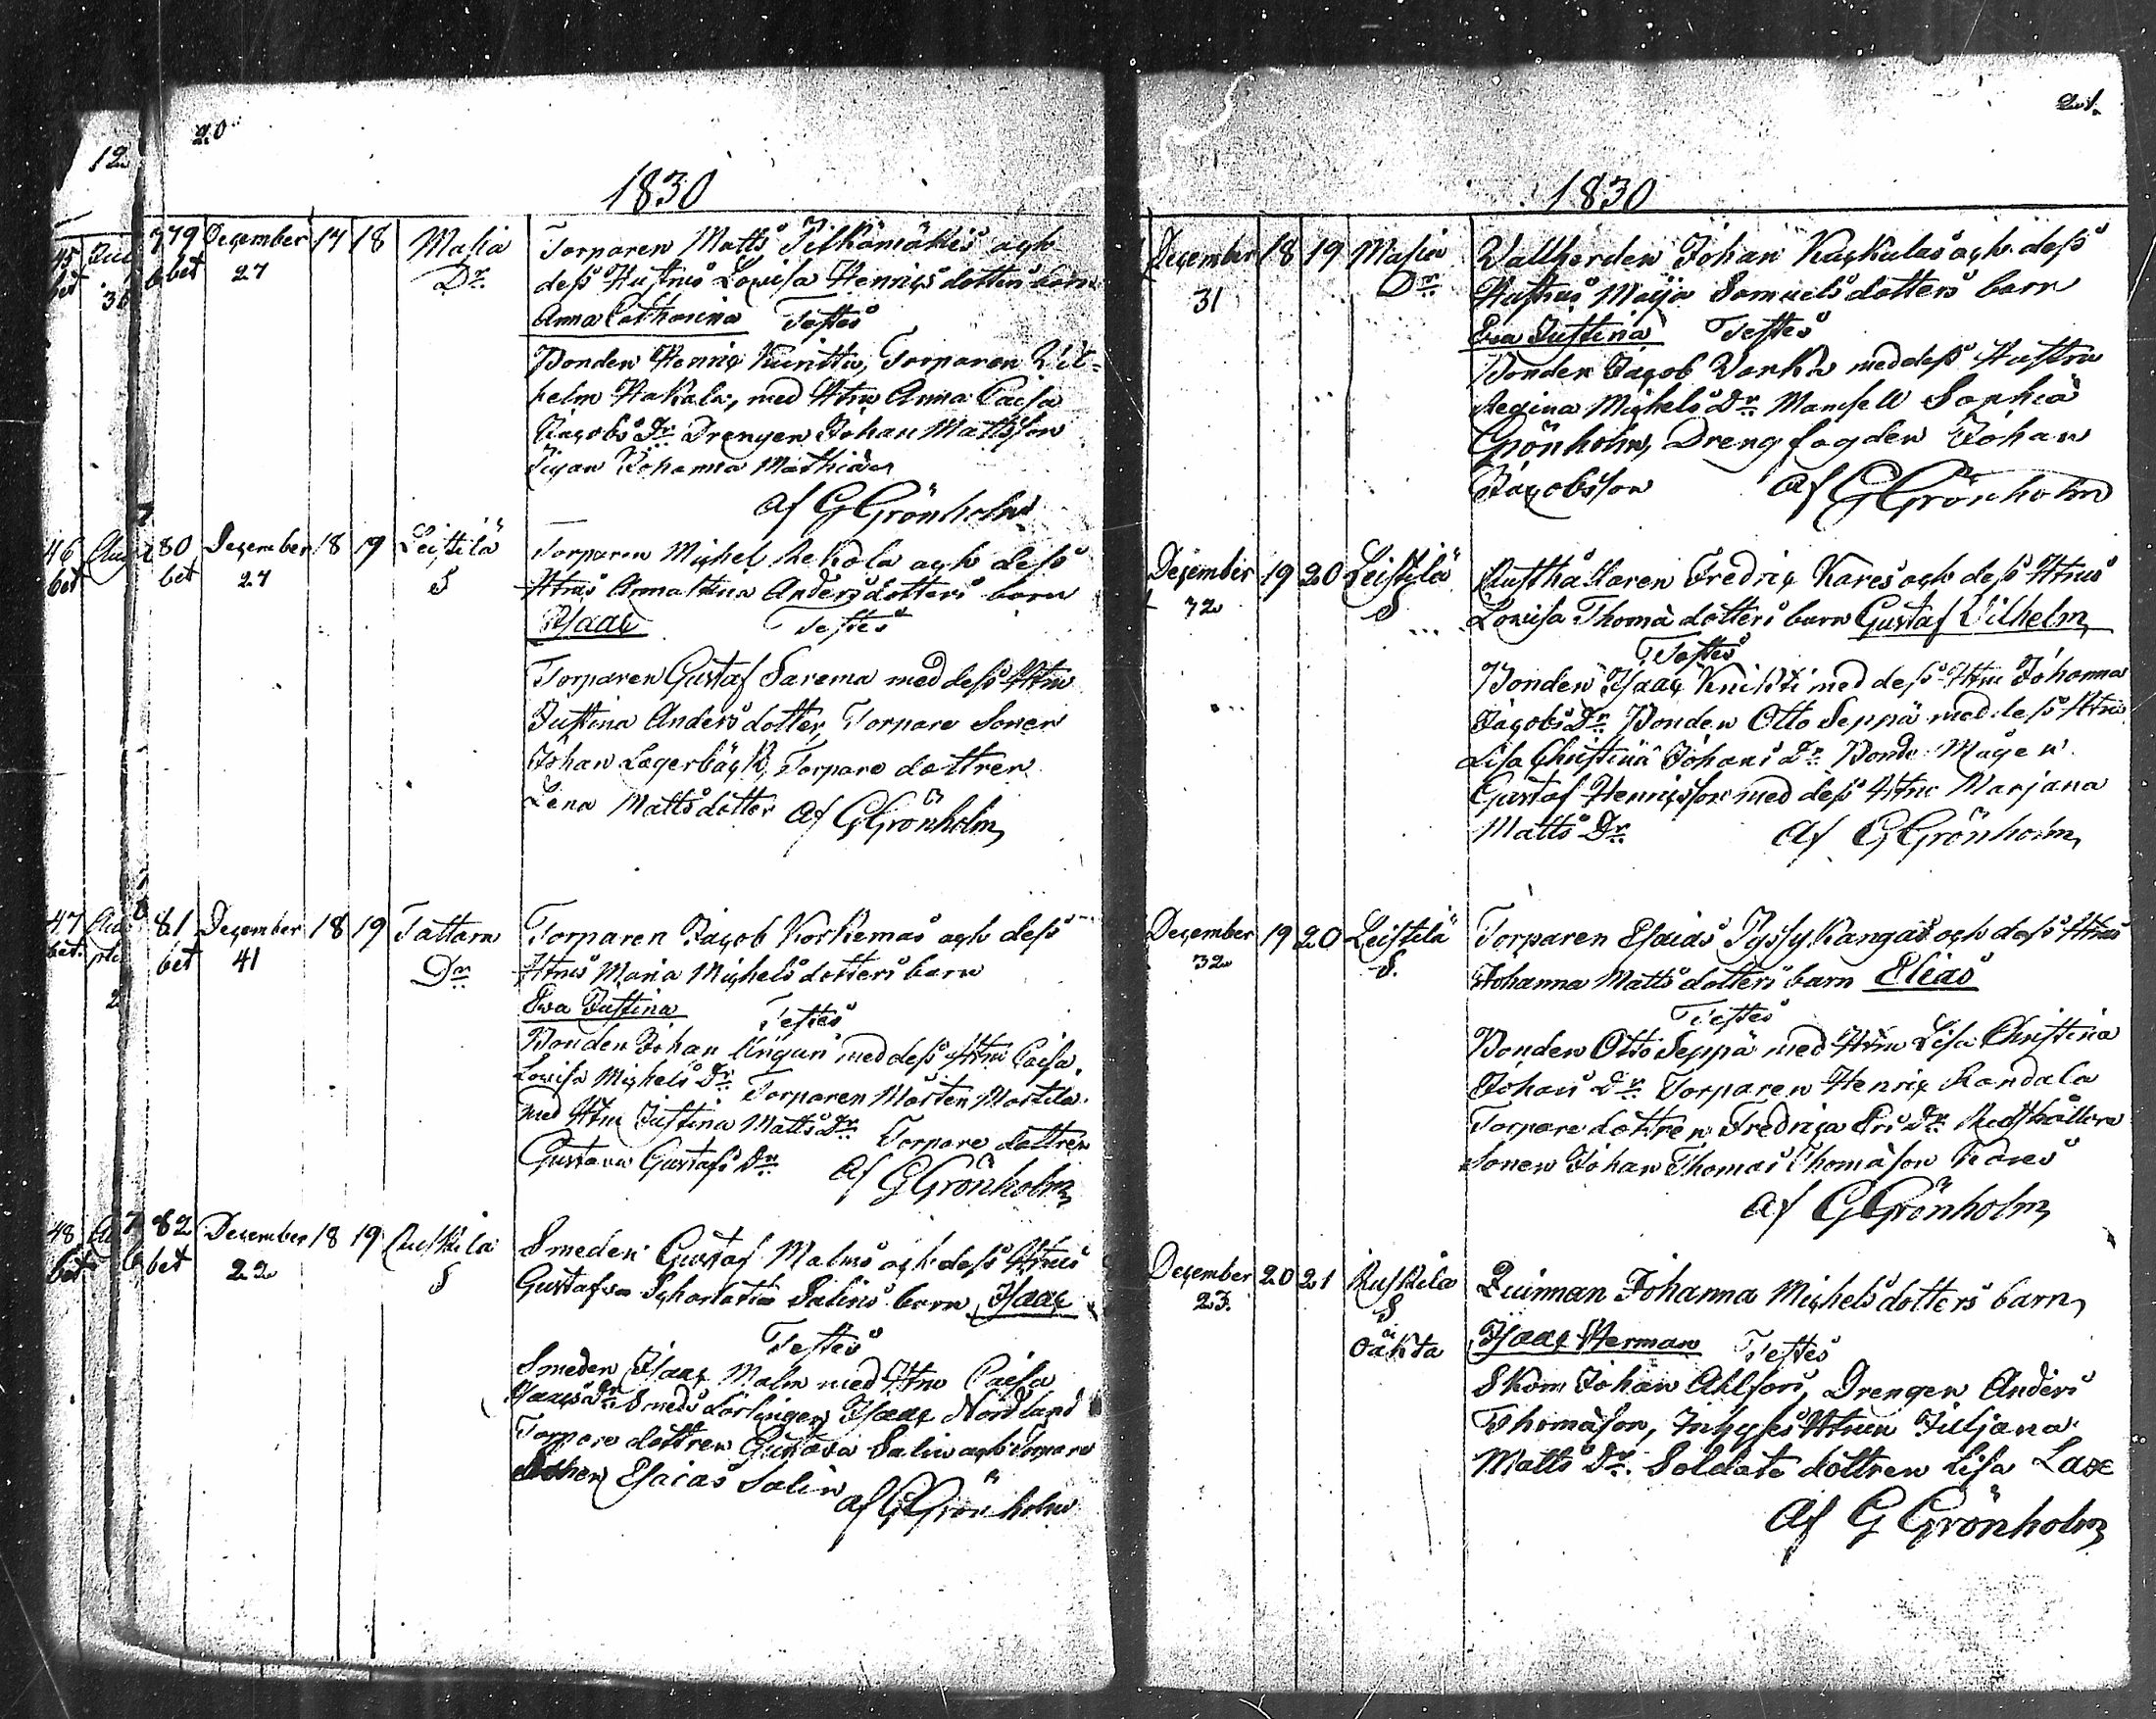 20
12
1830
45 bet Juli 30
79 bet December 27 17 18 Masia Dr.
Torparen Matts Pitkämäkis och
dess Hustrus Lovisa Henricsdotters barn
Anna Catharina Testes
Bonden Henric Kunittu, Torparen Wil-
helm Hakala, med Htru Anna Caisa
Jacobs Dr. Drengen Johan Mattsson
Pigan Johanna Mathiäs
af G Grönholm
46 bet
80 bet December 27 18 19 Leistilä S
Torparen Michel Kekola och dess
Htrus Anna Stina Andersdotters barn
Isaac Testes
Torparen Gustaf Sarema med dess Htru
Justina Andersdotter, Torpare Sonen
Johan Lagerbäck, Torpare dottren
Lena Mattsdotter af G Grönholm
47 bet.
81 bet December 41 18 19 Tattara Dr
Torparen Jacob Korkemas och dess
Htrus Maria Michelsdotters barn
Ewa Justina Testes
Bonden Johan Ungun med dess Htru Caisa
Lovisa Michels Dr. Torparen Mårten Mortila
med Htru Justina Matts Dr. Torpare dottren
Gustava Gustafs Dr. af G Grönholm
48 bet
82 bet December 22 18 19 Ruskila S
Smeden Gustaf Malms och dess Htrus
Gustafva Scharlotta Salins barn Isaac
Testes
Smeden Isaac Malm med Htru Caisa
Isaacs Dr. Smeds Lärlingen Isaac Nordlund
Torpare dottren Gustava Salin och Torpare
Sonen Esaias Salin af G Grönholm
21.
1830
December 31 18 19 Masia Dr.
Wallherden Johan Kackulas och dess
Hustrus Maija Samuelsdotters barn
Ewa Justina Testes
Bonden Jacob Vanha med dess Hustru
Regina Michels Dr. Mamsell Sophia
Grönholm, Drengfogden Johan
Jacobsson af G Grönholm
December 32 19 20 Leistilä S
Rusthållaren Fredric Kares och dess Htrus
Lovisa Thomädotters barn Gustaf Vilhelm
Testes
Bonden Isaac Knihti med dess Htru Johanna
Jacobs Dr. Bonden Otto Seppä med dess Htru
Lisa Christina Johans Dr. Bonde Mågen
Gustaf Henricsson med dess Htru Marjana
Matts Dr. af G Grönholm
December 32 19 20 Leistilä S.
Torparen Esaias Jyssy Kangas och dess Htrus
Johanna Mattsdotters barn Elias
Testes
Bonden Otto Seppä med Htru Lisa Christina
Johans Dr. Torparen Henric Randala
Torpare dottren Fredrica Eris Dr. Rusthållare
Sonen Johan Thomas Thomäson Kares
af G Grönholm
December 23. 20 21 Ruskila S oäkta
Quinnan Johanna Michelsdotters barn
Isaac Herman Testes
Skom. Johan Ahlfors, Drengen Anders
Thomäson, Inhyses Htrun Juljana
Matts Dr. Soldate dottren Lisa Lax
af G Grönholm